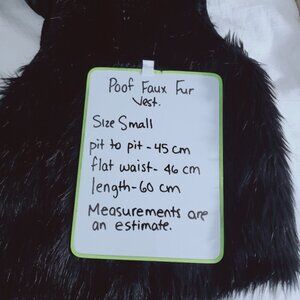 Poof Faux Fur
Vest.
Size Small
pit to pit - 45 cm
flat waist - 46 cm
length - 60 cm
Measurements are
an estimate.